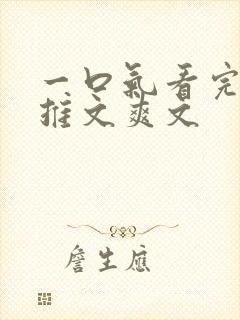 一口氣看完
推文爽文
詹生應